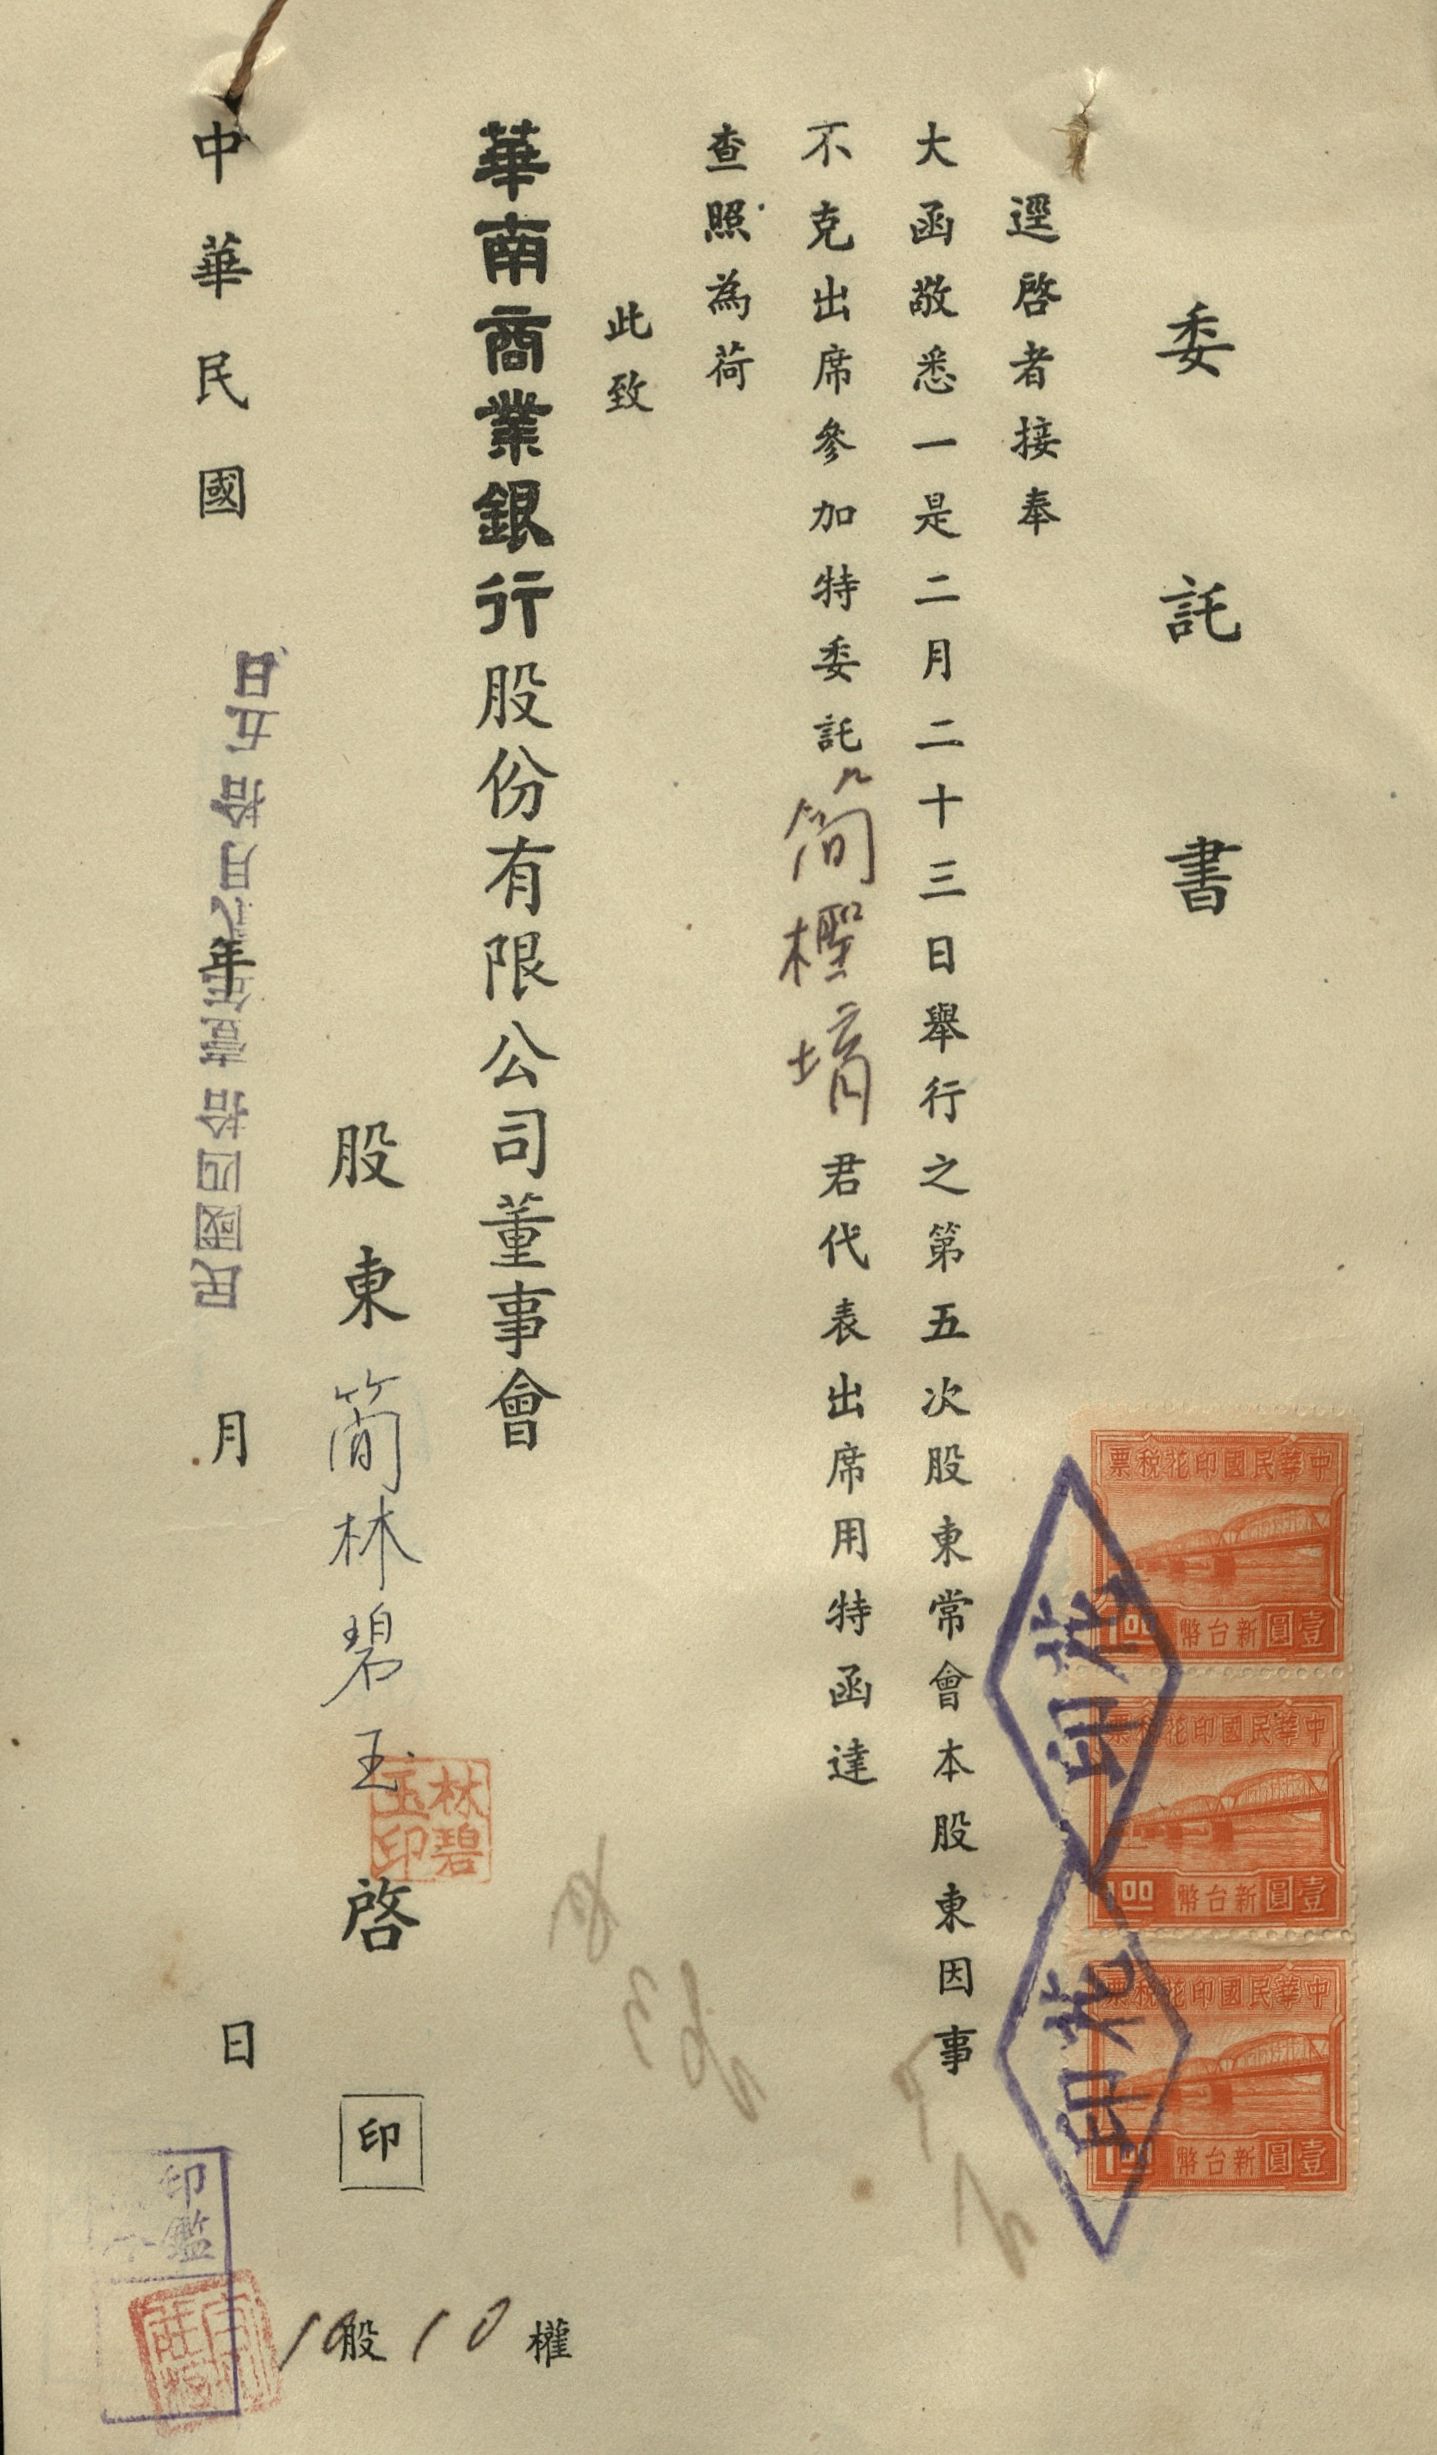 委託書
逕啓者接奉
大函敬悉一是二月二十三日舉行之第五次股東常會本股東因事
不克出席參加特委託簡檉堉君代表出席用特函達
查照為荷
此致
華南商業銀行股份有限公司董事會
股東簡林碧玉啓 印
林碧玉印
10股10權
中華民國年月日
民國四拾壹年弍月拾五日
印鑑
中華民國印花稅票
1.00 新台幣壹圓
中華民國印花稅票
1.00 新台幣壹圓
中華民國印花稅票
1.00 新台幣壹圓
印花
印花